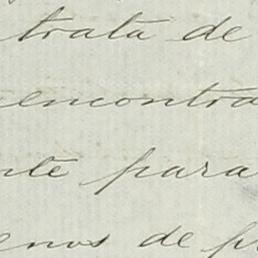 trata de
encontra
nte para
enos de p